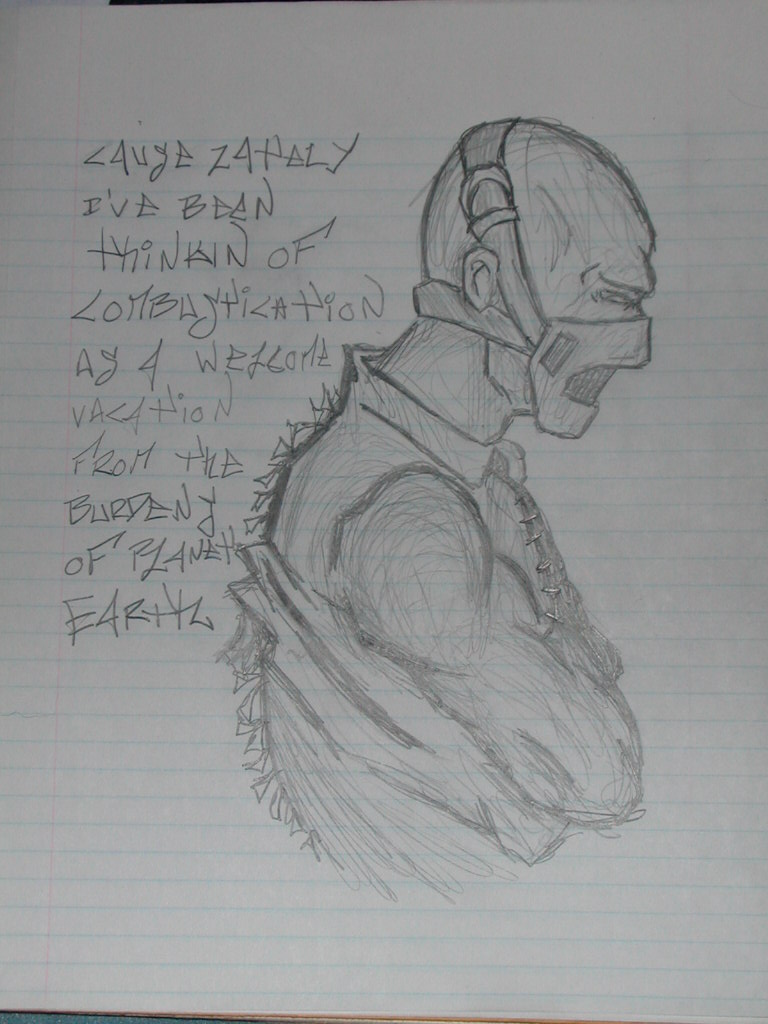 CAUSE LATELY
I'VE BEEN
THINKIN OF
COMBUSTICATION
AS A WELCOME
VACATION
FROM THE
BURDENS
OF PLANET
EARTH